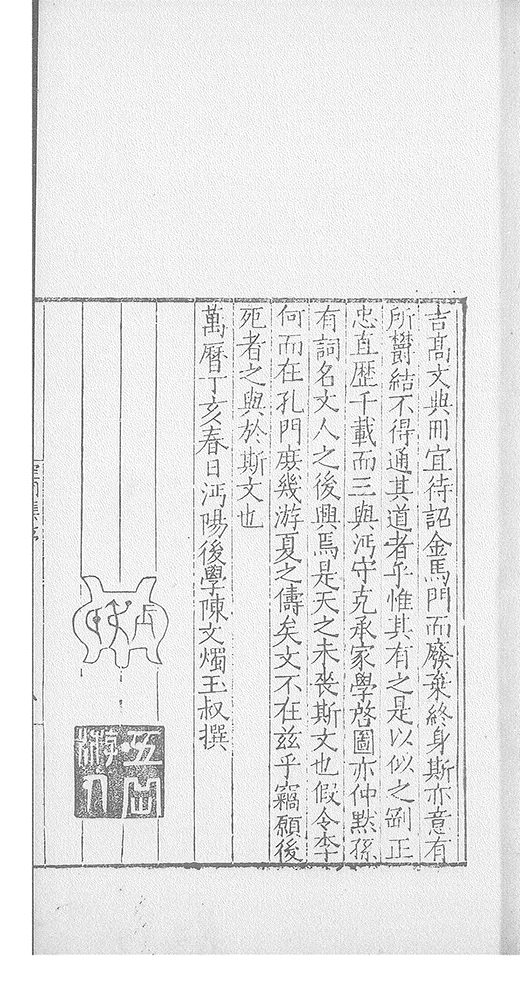 吉高文典冊宜待詔金馬門而廢棄終身斯亦意有
所欝結不得通其道者乎惟其有之是以似之劄正
忠直歷千載而三與沔守克承家學啓圖亦仲黙孫
有詞名文人之後興焉是天之未喪斯文也假令李
何而在孔門庻幾游夏之儔矣文不在兹乎竊願後
死者之與於斯文也
萬曆丁亥春日沔陽後學陳文燭玉叔撰
五岳
游人